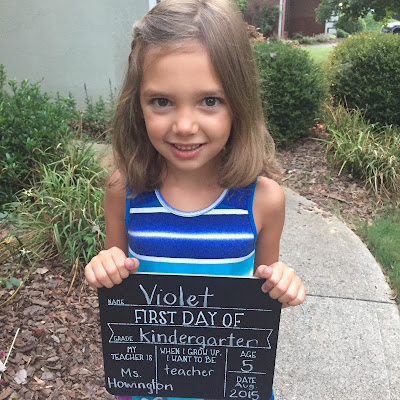 NAME Violet
FIRST DAY OF
GRADE Kindergarten
MY TEACHER IS
Ms. Howington
WHEN I GROW UP, I WANT TO BE
teacher
AGE
5
DATE
Aug. 2015